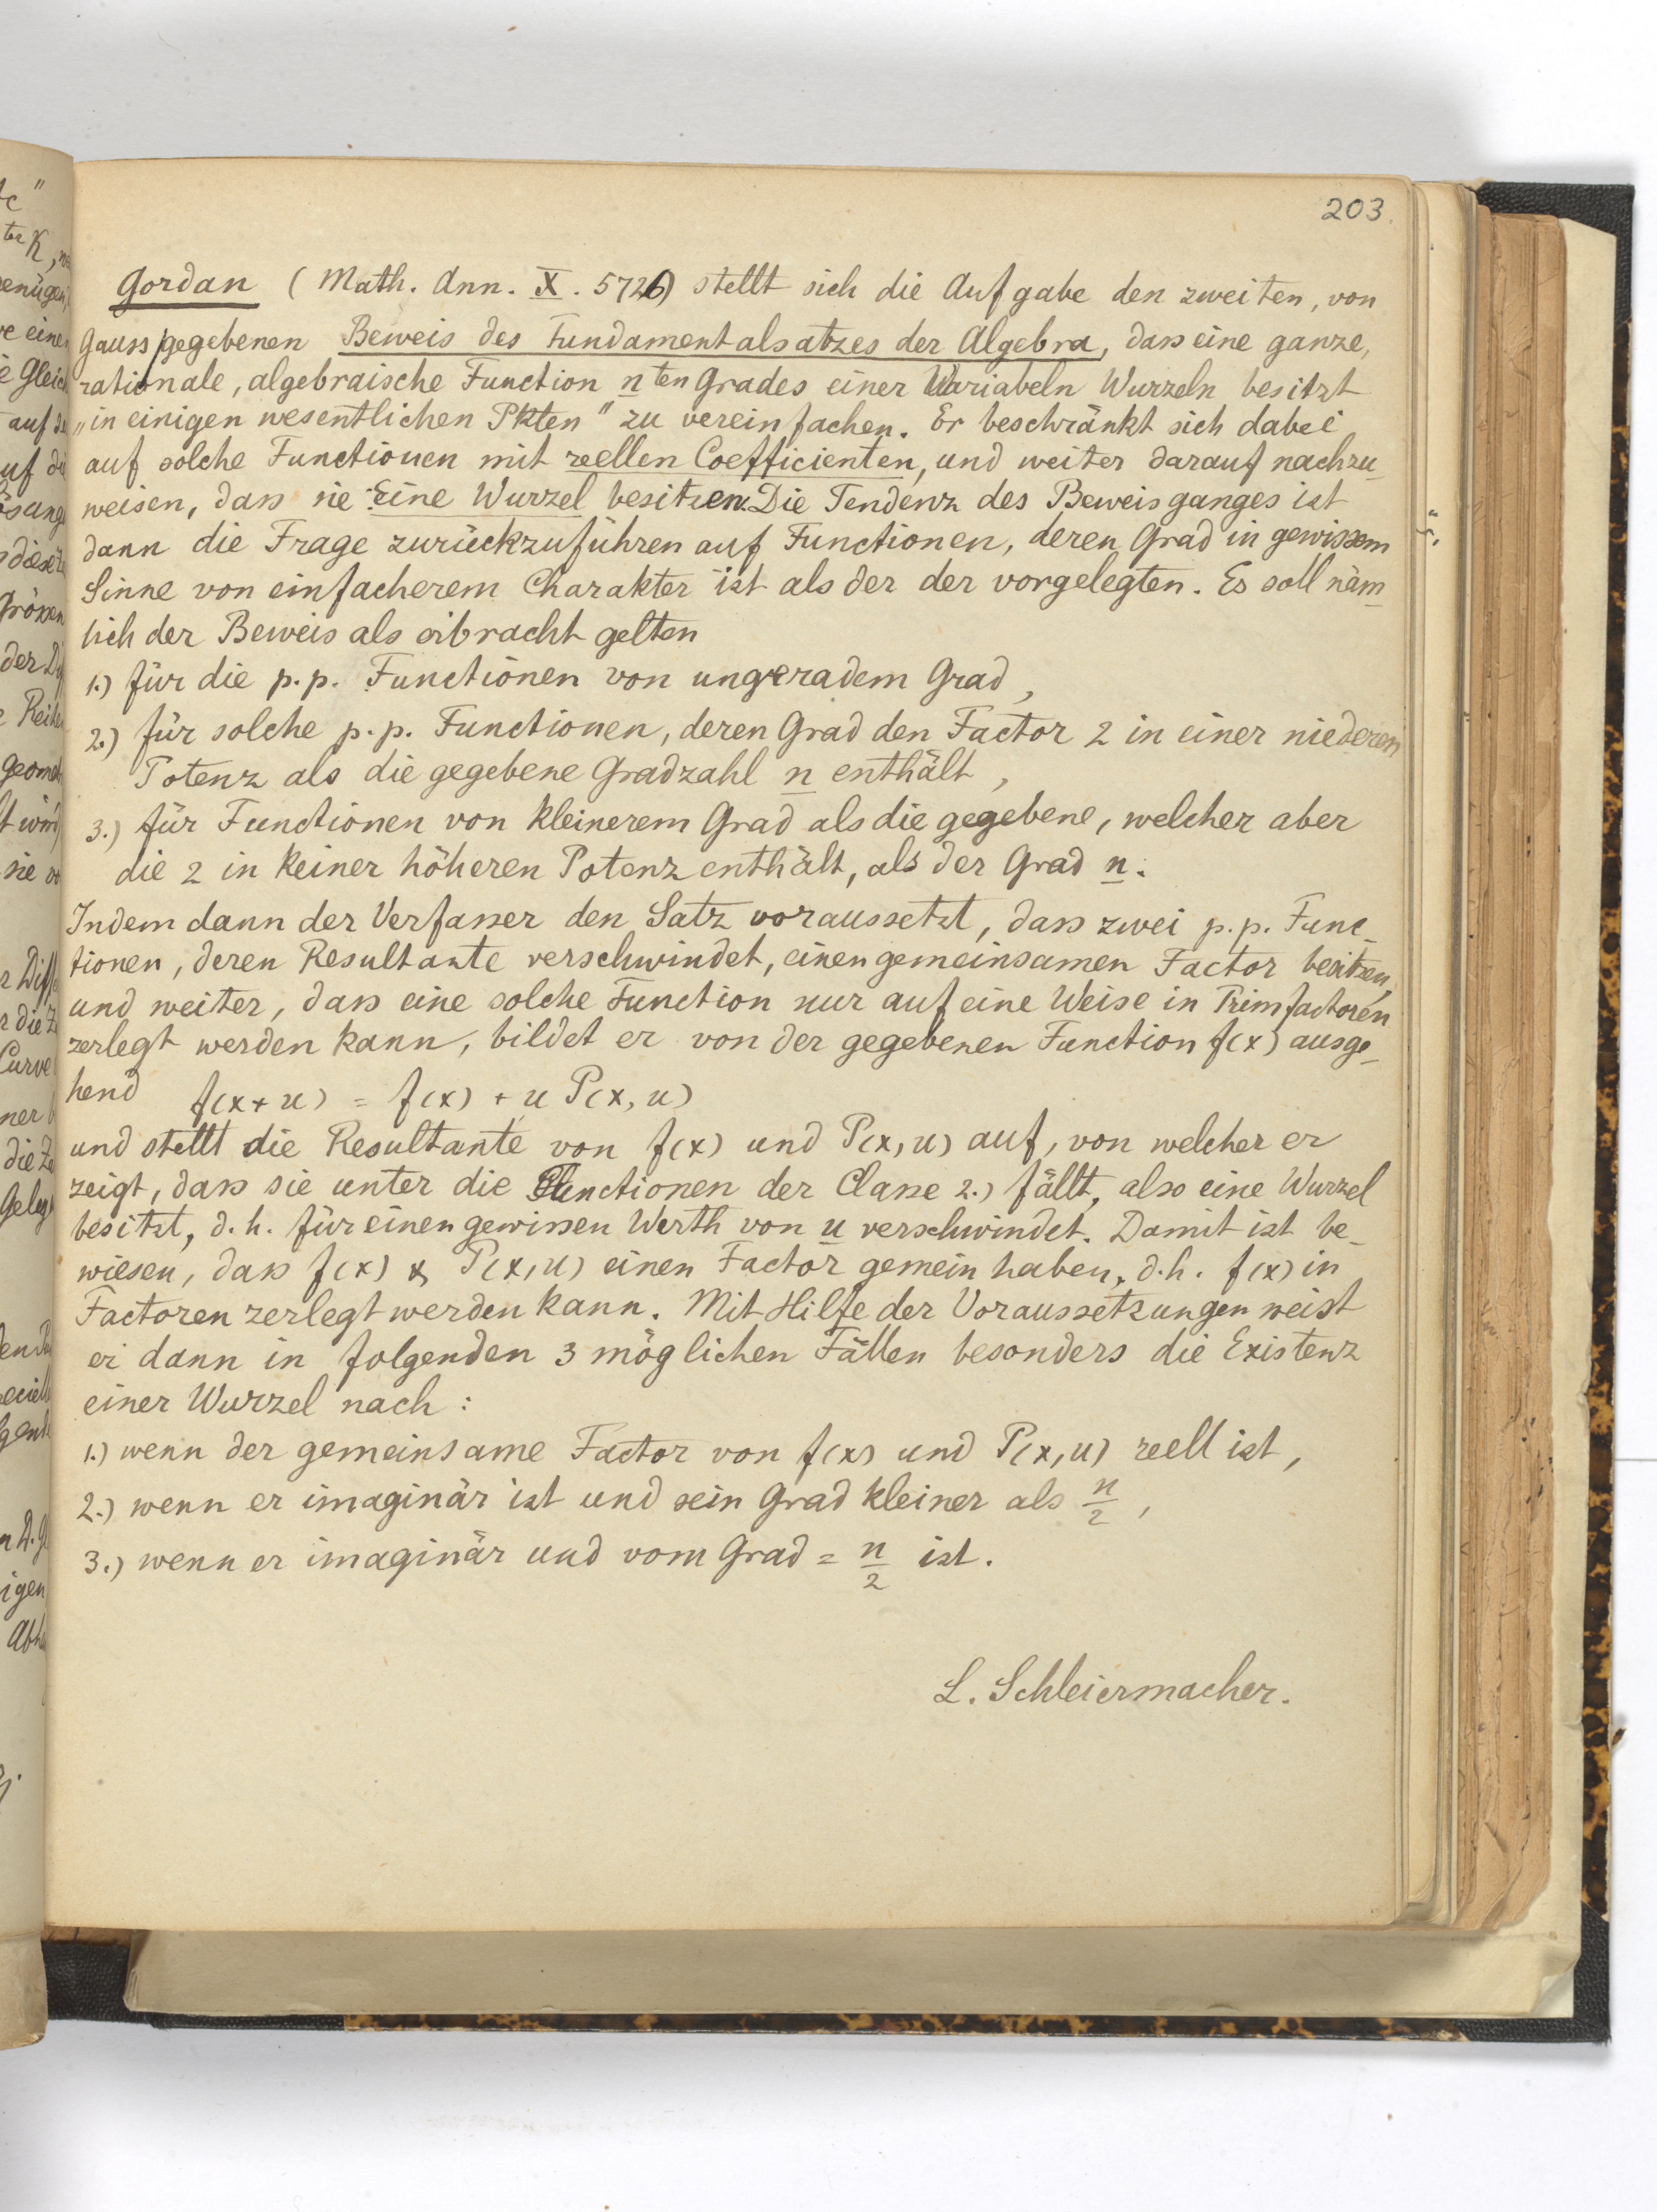 203.
Gordan (Math. Ann. X. 572) stellt sich die Aufgabe den zweiten, von
Gauss gegebenen Beweis des Fundamentalsatzes der Algebra, dass eine ganze,
rationale, algebraische Function nten Grades einer Variabeln Wurzeln besitzt
„in einigen wesentlichen Pkten" zu vereinfachen. Er beschränkt sich dabei
auf solche Functionen mit reellen Coefficienten, und weiter darauf nachzu-
weisen, dass sie Eine Wurzel besitzen. Die Tendenz des Beweisganges ist
dann die Frage zurückzuführen auf Functionen, deren Grad in gewissem
Sinne von einfacherem Charakter ist als der der vorgelegten. Es soll näm-
lich der Beweis als erbracht gelten
1.) für die p.p. Functionen von ungeradem Grad,
2.) für solche p.p. Functionen, deren Grad den Factor 2 in einer niederen
Potenz als die gegebene Gradzahl n enthält,
3.) für Functionen von kleinerem Grad als die gegebene, welcher aber
die 2 in keiner höheren Potenz enthält, als der Grad n.
Indem dann der Verfasser den Satz voraussetzt, dass zwei p.p. Func-
tionen, deren Resultante verschwindet, einen gemeinsamen Factor besitzen,
und weiter, dass eine solche Function nur auf eine Weise in Primfactoren
zerlegt werden kann, bildet er von der gegebenen Function f(x) ausge-
hend f(x+u) = f(x) + u P(x,u)
und stellt die Resultante von f(x) und P(x,u) auf, von welcher er
zeigt, dass sie unter die Functionen der Classe 2.) fällt, also eine Wurzel
besitzt, d.h. für einen gewissen Werth von u verschwindet. Damit ist be-
wiesen, dass f(x) & P(x,u) einen Factor gemein haben, d.h. f(x) in
Factoren zerlegt werden kann. Mit Hilfe der Voraussetzungen weist
er dann in folgenden 3 möglichen Fällen besonders die Existenz
einer Wurzel nach:
1.) wenn der gemeinsame Factor von f(x) und P(x,u) reell ist,
2.) wenn er imaginär ist und sein Grad kleiner als n/2,
3.) wenn er imaginär und vom Grad = n/2 ist.
L. Schleiermacher.